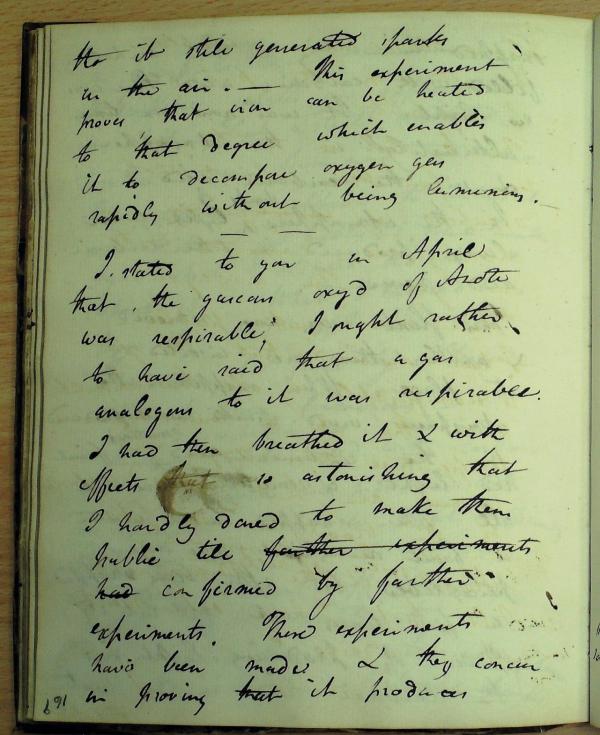 tho it still generated sparks
in the air. — This experiment
proves that iron can be heated
to that degree which enables
it to decompose oxygen gas
rapidly without being luminous. —
— —
I stated to you in April
that the gaseous oxyd of Azote
was respirable; I ought rather
to have said that a gas
analogous to it was respirable.
I had then breathed it & with
effects that so astonishing that
I hardly dared to make them
public till further experiments
had confirmed by farther
experiments. These experiments
have been made & they concur
in proving that it produces